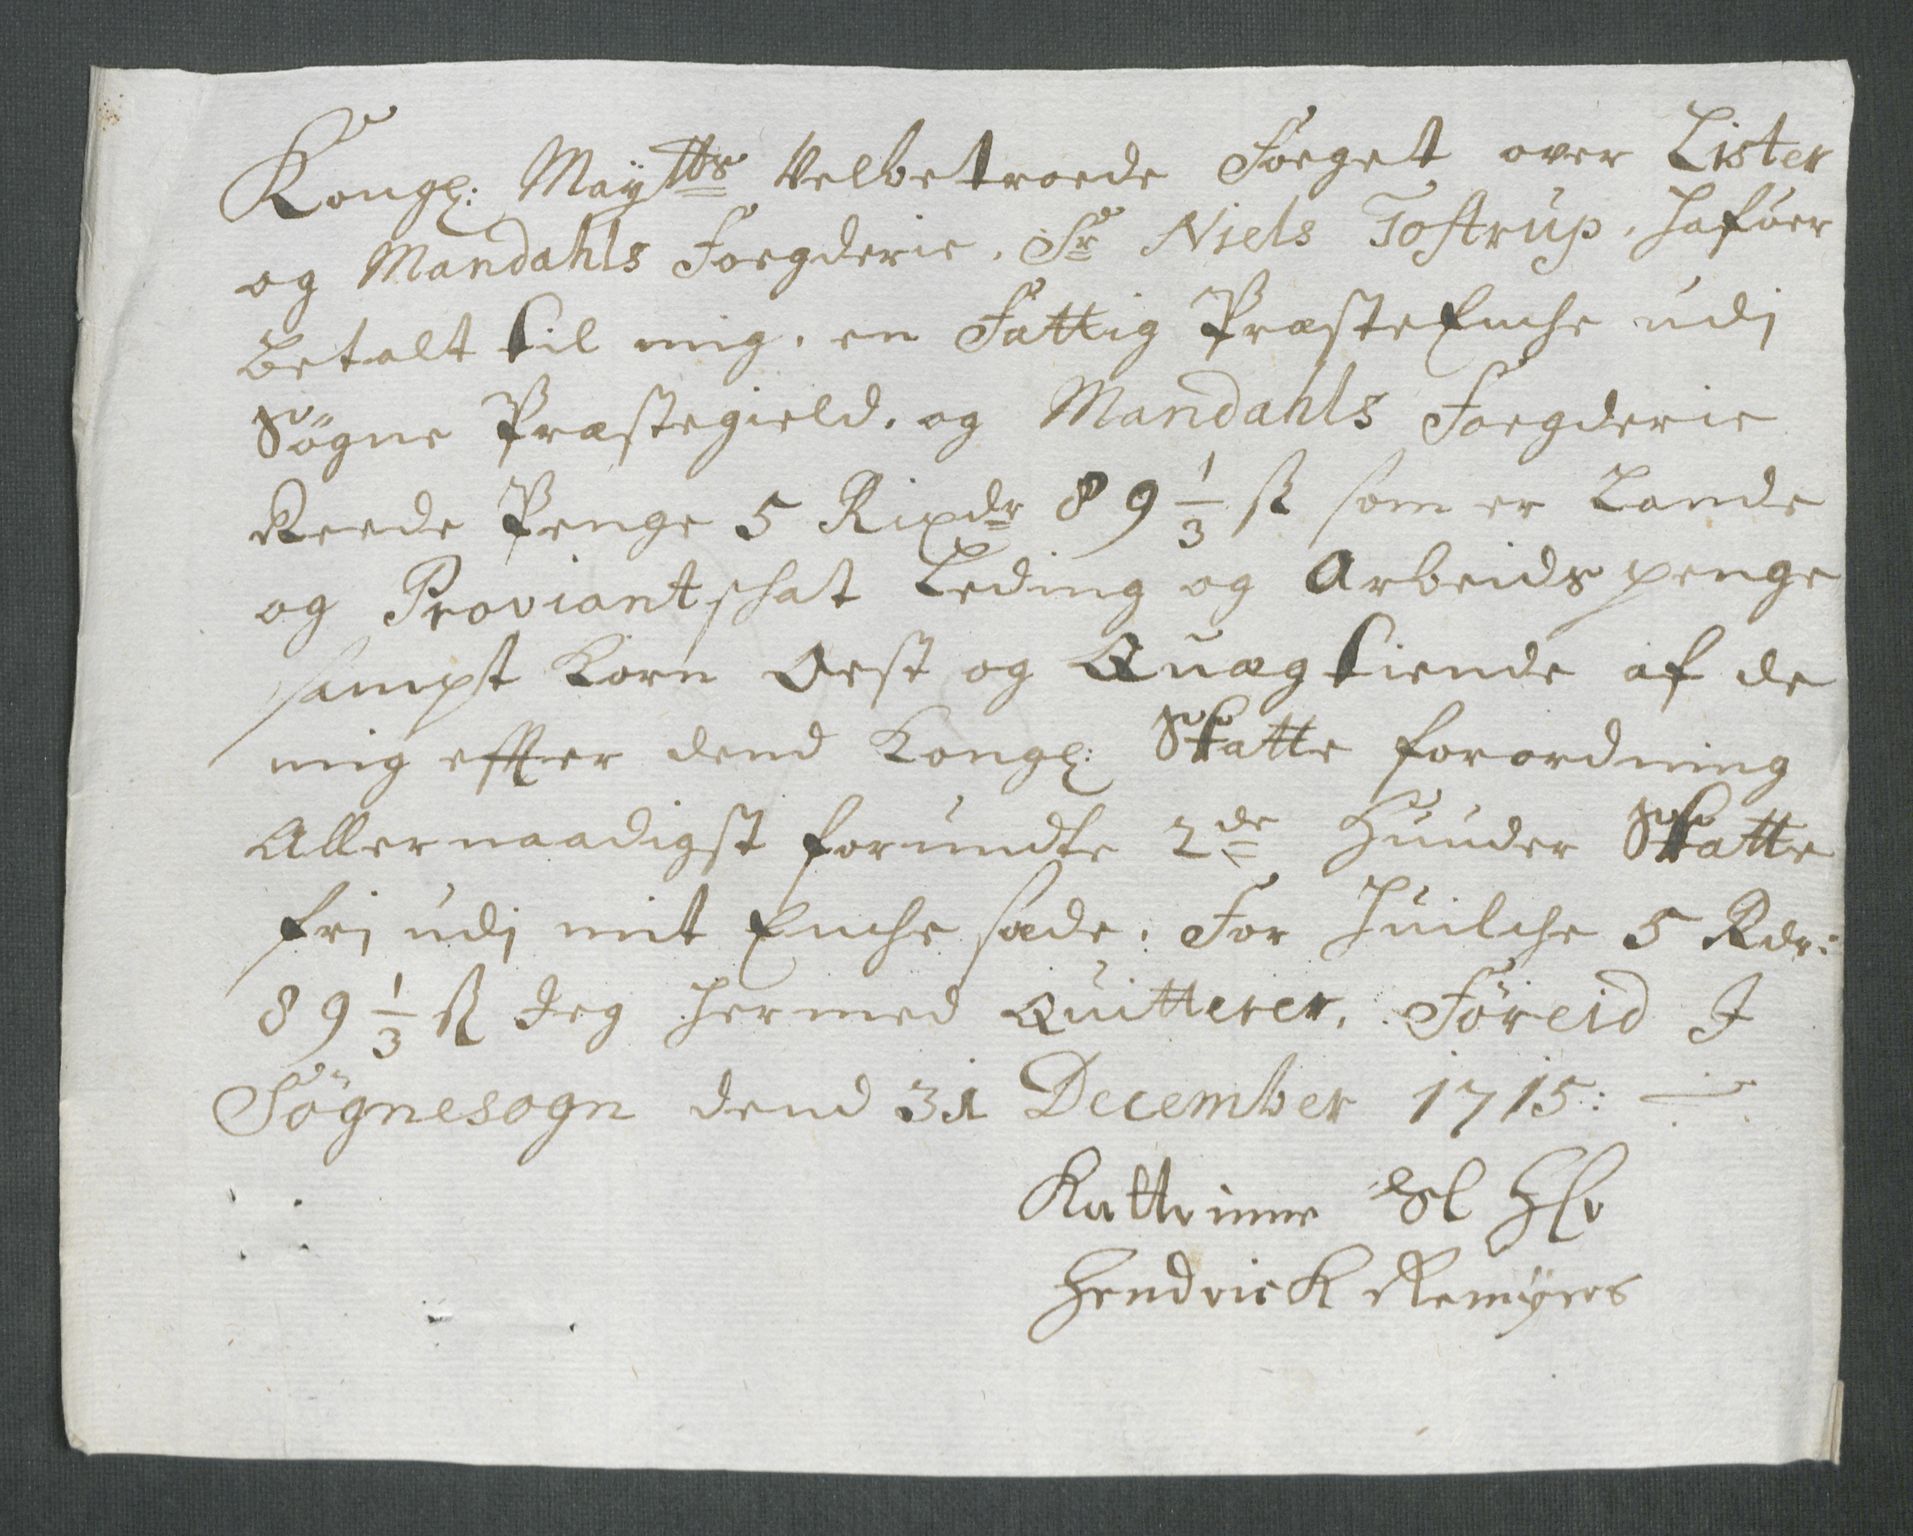 Kongl: Maÿtts Velbetroede Foeget over Lister
og Mandahls Foegderie. Sr Niels Tostrup, hafuer
betalt til mig, en Fattig PræsteEnche udj
Søgne Præstegield, og Mandahls Foegderie
Reede Penge 5 Rixdr 89 1/3 ß som er Lande
og Proviant schat Leding og Arbeids penge
sampt Korn Oest og Quægtiende af de
mig effter dend Kongl: Skatte forordning
Allernaadigst forundte 2de Huuder Skatte
frj udj mit Enche sæde. For huilche 5 Rdr:
89 1/3 ß Jeg hermed Quitterer. Föreid J
Sögnesogn dend 31 December 1715:
Kattrinne Sl Hr
Hendrick Remÿers